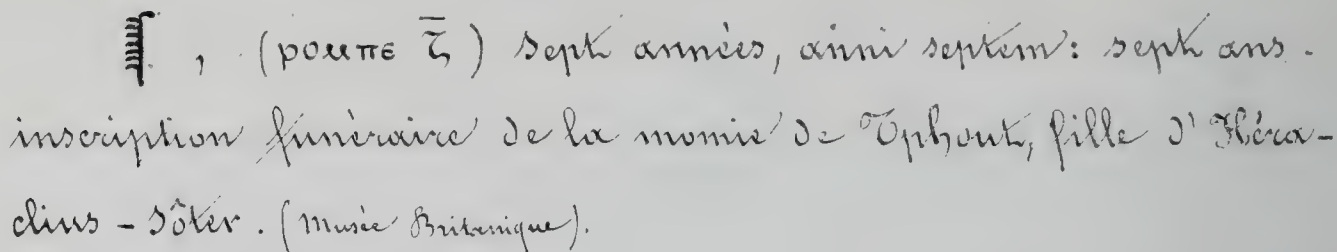 , (ⲣⲟⲙⲡⲉ ⲍ̅) sept années, anni septem: sept ans.
inscription funéraire de la momie de Tphout, fille d'Héra-
clius - Sôter. (Musée Britannique).